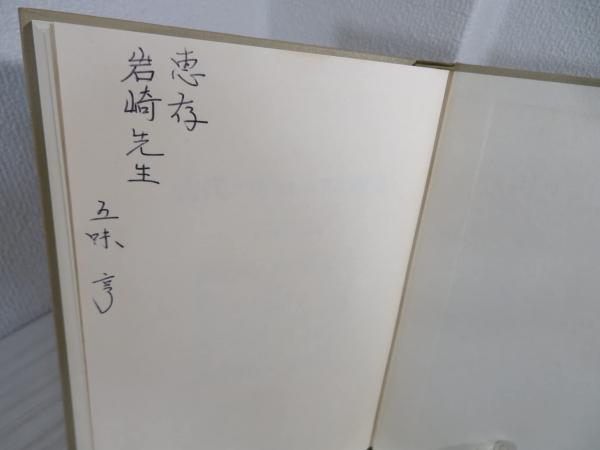 恵存
岩崎先生
五味 亨